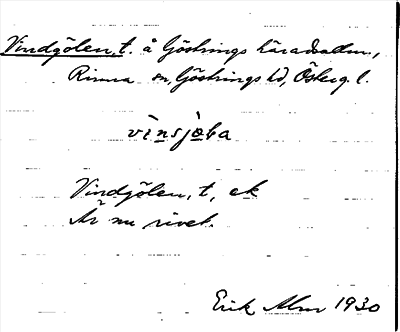 Vindgölen, t. å Göstrings häradsallm.,
Rinna sn, Göstrings hd, Österg. l.
vinsjøʋa
Vindgölen, t, ek
Är nu rivet.
Erik Alm 1930